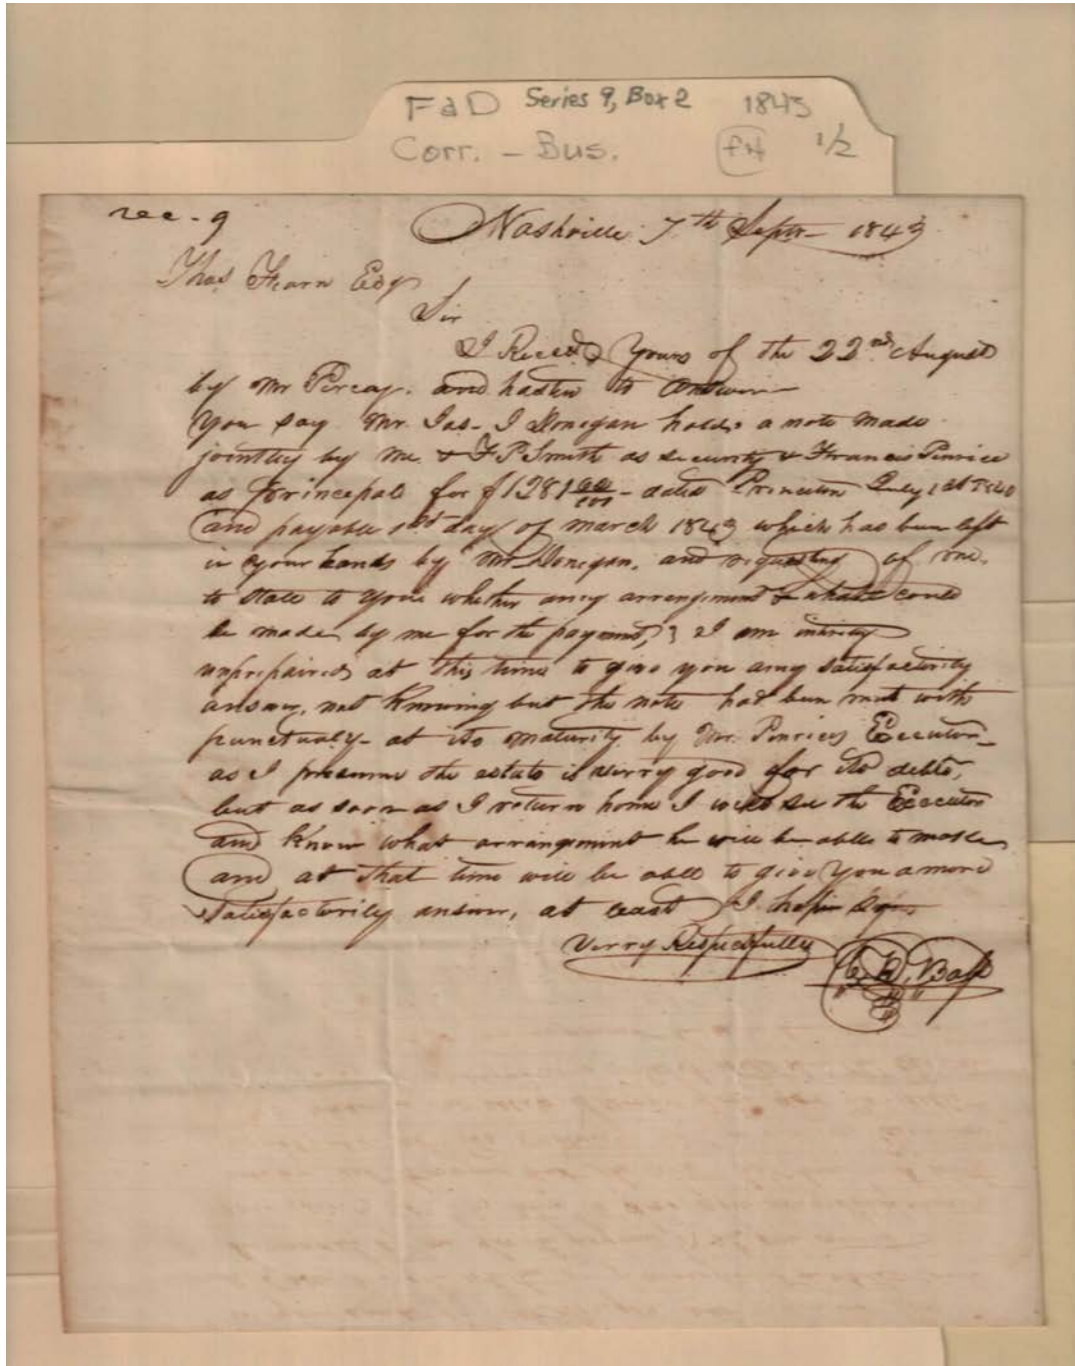 F&D Series 9, Box 2 1843
Corr. - Bus. FN 1/2
rec. 9
Nashville 7th Septr 1843
Thos Fearn Esqr
Sir
I Received Yours of the 22nd August
by Mr and hasten to answer
You say Mr. Jas. J Donegan holds a note made
jointly by me & F P Smith as security & Francis Penrice
as principal for $1281 00/100 - dated Princeton July 1st 1840
and payable 1st day of March 1843 which has been left
in your hands by Mr Donegan, and requesting of me,
to state to you whether any arrangement & what could
be made by me for the payment, I am intirely
unprepaired at this time to give you any satisfactority
answer, not knowing but the note had been met with
punctualy - at its maturity by Mr. Penrices Executor
as I presume the estate is verry good for its debts,
but as soon as I return home I will see the Executor
and know what arrangement he will be able to make
and at that time will be able to give You a more
satisfactorily answer, at least I hope
Verry Respectfully